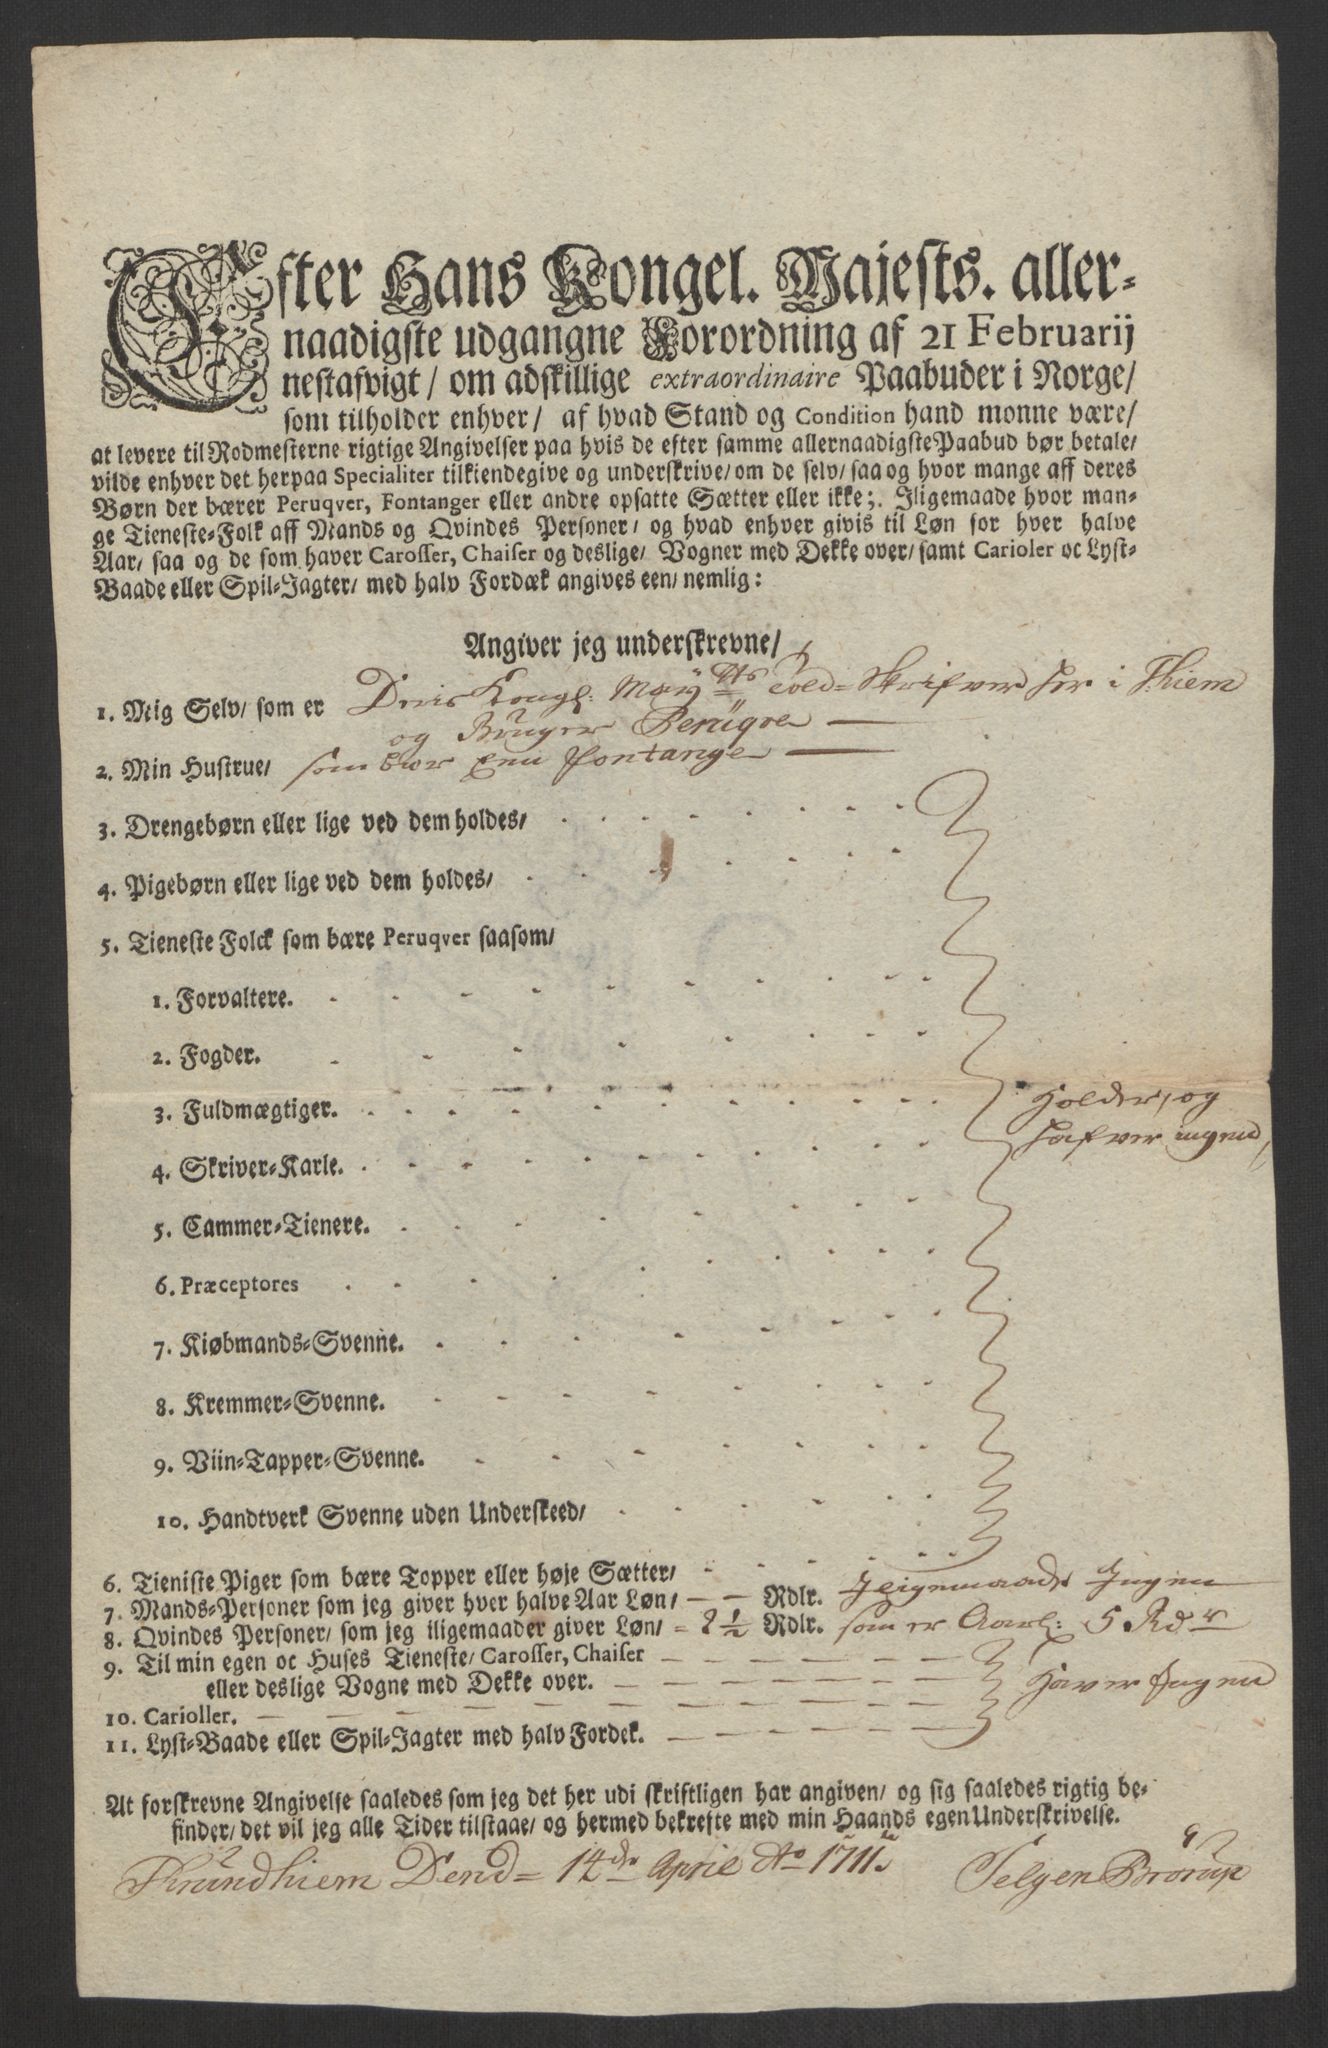 Efter Hans Kongel. Majests. aller-
naadigste udgangne Forordning af 21 Februarij
nestafvigt/ om adskillige extraordinaire Paabuder i Norge/
som tilholder enhver/ af hvad Stand og Condition hand monne være/
at levere til Rodmesterne rigtige Angivelser paa hvis de efter samme allernaadigste Paabud bør betale/
vilde enhver det herpaa Specialiter tilkiendegive og underskrive/ om de selv/ saa og hvor mange aff deres
Børn der bærer Peruqver, Fontanger eller andre opsatte Sætter eller ikke;. Iligemaade hvor man-
ge Tieneste-Folk aff Mands og Qvindes Personer/ og hvad enhver givis til Løn for hver halve
Aar/ saa og de som haver Carosser, Chaiser og deslige/ Vogner med Dekke over/ samt Carioler oc Lyst-
Baade eller Spil-Jagter/ med halv Fordæk angives een/ nemlig:
Angiver jeg underskrevne/
1. Mig Selv/ som er Kongl: May tts Skrifver her i Thiem
og Bruger Perüqve
2. Min Hustrue/ som bær Fontange
3. Drengebørn eller lige ved dem holdes/
4. Pigebørn eller lige ved dem holdes/
5. Tieneste Folck som bære Peruqver saasom/
1. Forvaltere.
2. Fogder.
3. Fuldmægtiger. Holder, og
4. Skriver-Karle. hafver ingen
5. Cammer-Tienere.
6. Præceptores
7. Kiøbmands-Svenne.
8. Kremmer-Svenne.
9. Viin-Tapper-Svenne.
10. Handtverk Svenne uden Underskeed/
6. Tieniste Piger som bære Topper eller høje Sætter/
7. Mands-Personer som jeg giver hver halve Aar Løn/ — — Rdlr. Iligemaade Ingen
8. Qvindes Personer/ som jeg iligemaader giver Løn/ = 2 1/2 Rdlr. som er Aarl: 5 Rdr
9. Til min egen oc Huses Tieneste/ Carosser, Chaiser
eller deslige Vogne med Dekke over. Haver Ingen
10. Carioller.
11. Lyst-Baade eller Spil-Jagter med halv Fordek.
At forskrevne Angivelse saaledes som jeg det her udi skriftligen har angiven/ og sig saaledes rigtig be-
finder/ det vil jeg alle Tider tilstaae/ og hermed bekrefte med min Haands egen Underskrivelse.
Thrundhiem Dend = 14de April Ao 1711. Selgen Brorup